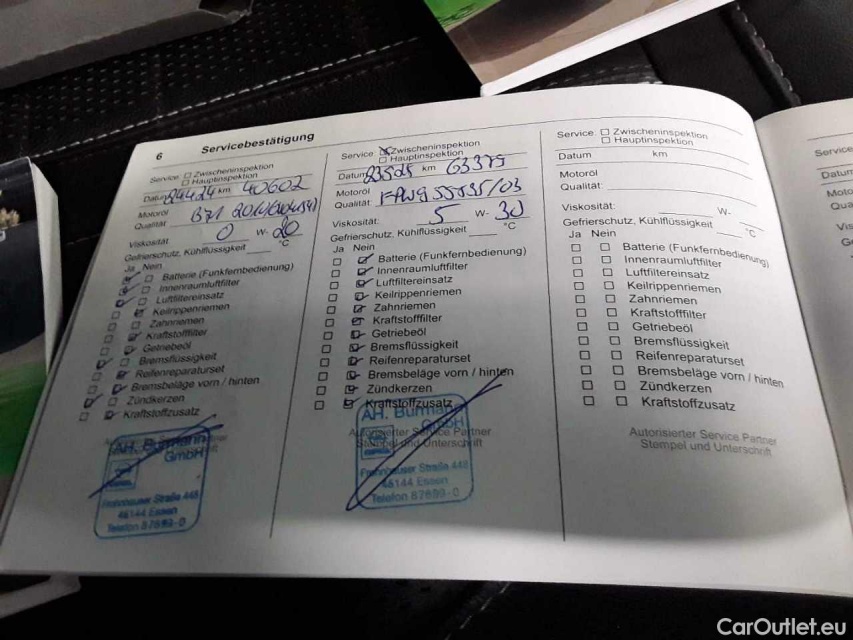 6 Servicebestätigung
Service: Zwischeninspektion
Hauptinspektion
Datum 24424 km 40602
Motoröl
Qualität B71 2010
Viskosität: 0 W- 20
Gefrierschutz, Kühlflüssigkeit °C
Ja Nein
Batterie (Funkfernbedienung)
Innenraumluftfilter
Luftfiltereinsatz
Keilrippenriemen
Zahnriemen
Kraftstofffilter
Getriebeöl
Bremsflüssigkeit
Reifenreparaturset
Bremsbeläge vorn / hinten
Zündkerzen
Kraftstoffzusatz
AH. Burmann
GmbH
Frohnhauser Straße 448
45144 Essen
Telefon 87699-0
Service: Zwischeninspektion
Hauptinspektion
Datum 23525 km 63375
Motoröl
Qualität
Viskosität: 5 W- 30
Gefrierschutz, Kühlflüssigkeit °C
Ja Nein
Batterie (Funkfernbedienung)
Innenraumluftfilter
Luftfiltereinsatz
Keilrippenriemen
Zahnriemen
Kraftstofffilter
Getriebeöl
Bremsflüssigkeit
Reifenreparaturset
Bremsbeläge vorn / hinten
Zündkerzen
Kraftstoffzusatz
AH. Burmann
GmbH
Autorisierter Service Partner
Stempel und Unterschrift
Frohnhauser Straße 448
45144 Essen
Telefon 87699-0
Service: Zwischeninspektion
Hauptinspektion
Datum km
Motoröl
Qualität:
Viskosität: W-
Gefrierschutz, Kühlflüssigkeit °C
Ja Nein
Batterie (Funkfernbedienung)
Innenraumluftfilter
Luftfiltereinsatz
Keilrippenriemen
Zahnriemen
Kraftstofffilter
Getriebeöl
Bremsflüssigkeit
Reifenreparaturset
Bremsbeläge vorn / hinten
Zündkerzen
Kraftstoffzusatz
Autorisierter Service Partner
Stempel und Unterschrift
Service
CarOutlet.eu